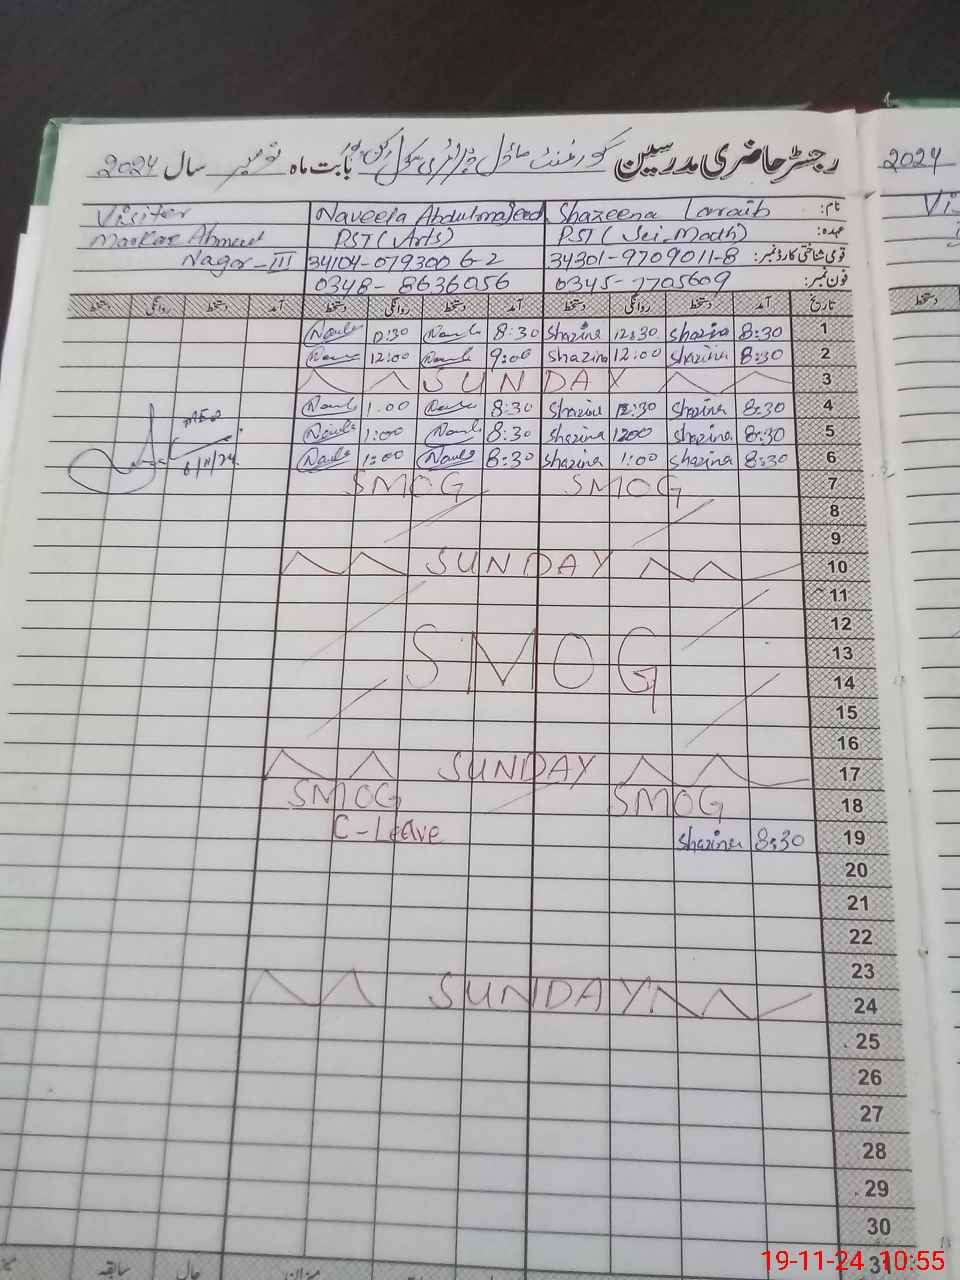 رجسٹر حاضری مدرسین گورنمنٹ ماڈل پرائمری سکول بابت ماہ نومبر سال 2024
2024
نام: Shazeena Laraib Naveela Abdulmajeed Visiter
عہدہ: PST (Sci Math) PST (Arts) Markaz Ahmed
قومی شناختی کارڈ نمبر: 34301-9709011-8 34104-0793006-2 Nagar-III
فون نمبر: 0345-7705609 0348-8636056
تاریخ آمد دستخط روانگی دستخط آمد دستخط روانگی دستخط آمد دستخط روانگی دستخط
1 8:30 Shazina 12:30 Shazina 8:30
2 8:30 Shazina 12:00 Shazina 9:00 12:00
3 SUNDAY
4 8:30 Shazina 12:30 Shazina 8:30 1:00
5 8:30 Shazina 1200 Shazina 8:30 1:00
6 8:30 Shazina 1:00 Shazina 8:30 1:00 6/11/24
7 SMOG SMOG
8
9
10 SUNDAY
11
12
13 SMOG
14
15
16
17 SUNDAY
18 SMOG SMOG
19 8:30 Shazina C-Leave
20
21
22
23
24 SUNDAY
25
26
27
28
29
30
31
میزان حال سابقہ
19-11-24 10:55